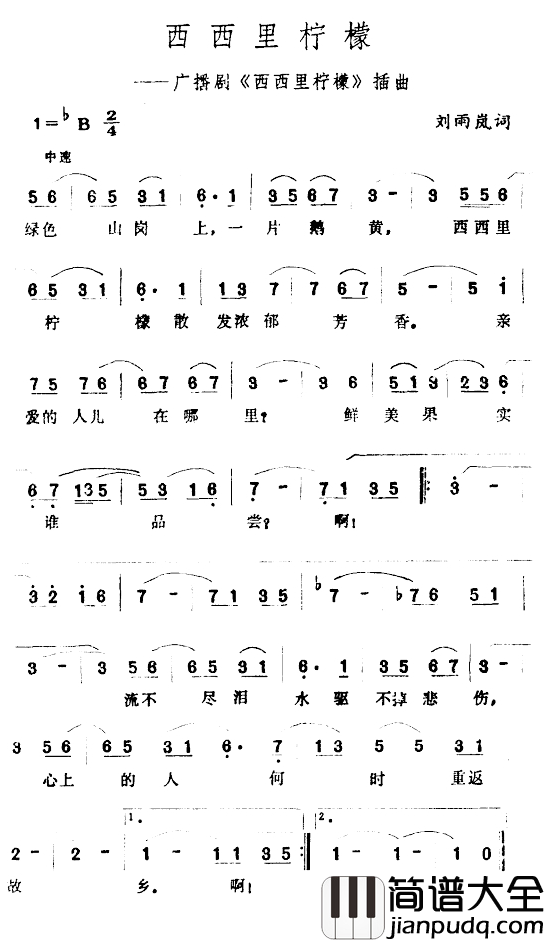 西西里柠檬
——广播剧《西西里柠檬》插曲
1=♭B 2/4 刘雨岚词
中速
5 6 | 6 5 3 1 | 6· 1 | 3 5 6 7 | 3 - | 3 5 5 6 |
绿色 山岗 上,一 片 鹅 黄, 西西里
6 5 3 1 | 6· 1 | 1 3 7 | 7 6 7 | 5 - | 5 i |
柠 檬散 发浓郁 芳 香。 亲
7 5 7 6 | 6 7 6 7 | 3 - | 3 6 | 5 1 3 | 2 3 6 |
爱的人儿 在哪 里? 鲜 美 果 实
6 7 1 3 5 | 5 3 1 6 | 7 - | 7 1 3 5 | 3 -
谁 品 尝? 啊!
3 2 1 6 | 7 - | 7 1 3 5 | ♭7 - | ♭7 6 5 1 |
3 - | 3 5 6 | 6 5 3 1 | 6· 1 | 3 5 6 | 6 7
流不 尽泪 水 驱 不掉 悲 伤,
3 5 6 | 6 5 3 1 | 6· 7 | 1 3 5 | 5 3 1 |
心上 的人 何 时 重返
2 - | 2 - | 1. 1 - | 1 1 3 5 :| 2. 1 - | 1 - | 1 0
故 乡。 啊!
简谱大全
jianpudq.com